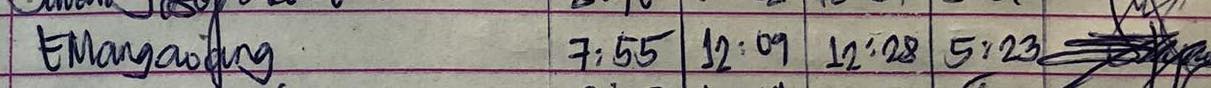 EMangaoing 7:55 12:09 12:28 5:23